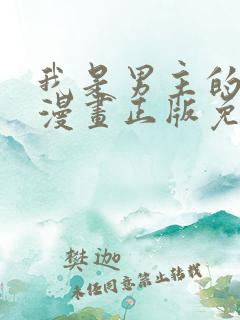 我是男主的
漫畫正版免
樊迦
未经同意禁止转载